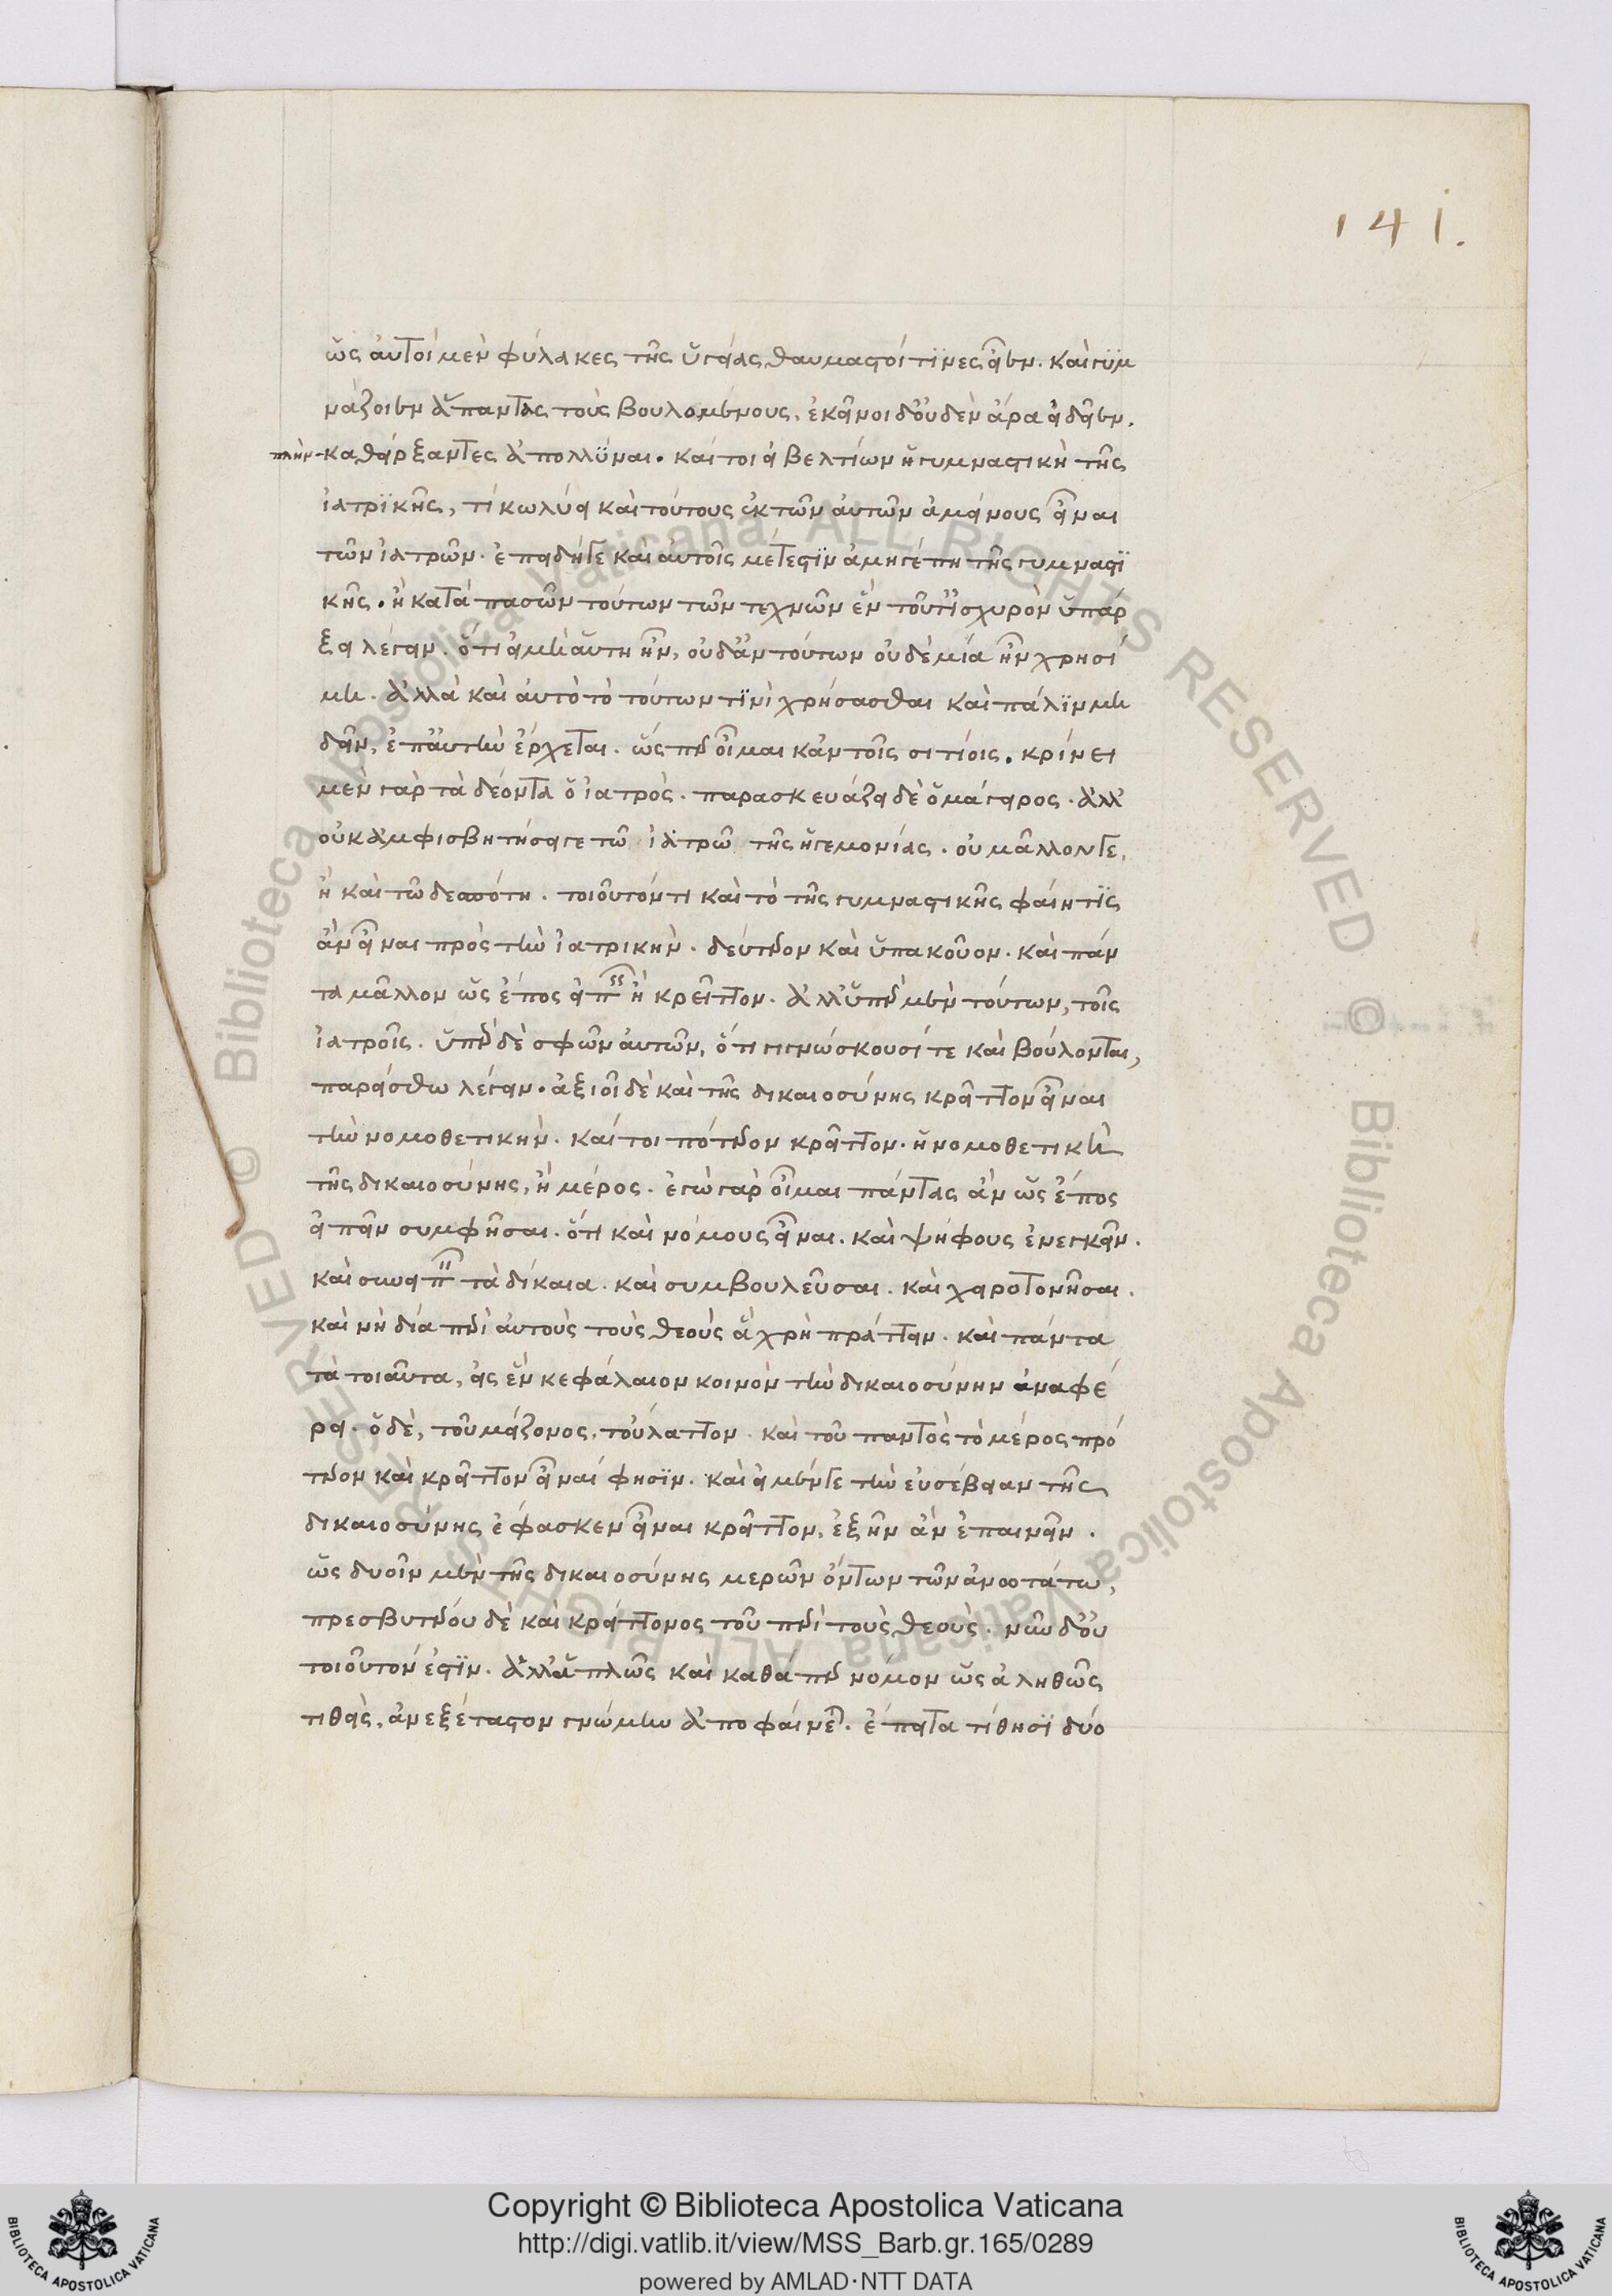 ὡς αὐτοὶ μὲν φύλακες τῆς ὑγείας θαυμαστοί τινες εἶεν. καὶ γυμ
νάζοιεν ἅπαντας τοὺς βουλομένους, ἐκεῖνοι δ' οὐδὲν ἄρα εἰδεῖεν.
πλὴν καθείρξαντες ἀπολλύναι. καίτοι εἰ βελτίων ἡ γυμναστικὴ τῆς
ἰατρικῆς, τί κωλύει καὶ τούτους ἐκ τῶν αὐτῶν ἀμείνους εἶναι
τῶν ἰατρῶν. ἐπειδήγε καὶ αὐτοῖς μέτεστιν ἀμηγέπη τῆς γυμναστι
κῆς. ἢ κατὰ πασῶν τούτων τῶν τεχνῶν ἓν τοῦτ' ἰσχυρὸν ὑπάρ
ξει λέγειν. ὅτι εἰ μὴ αὕτη ἦν, οὐδ' ἂν τούτων οὐδὲ μία ἦν χρησί
μη. ἀλλὰ καὶ αὐτὸ τὸ τούτων τινὶ χρήσασθαι καὶ πάλιν μὴ
δεῖν, ἐπ' αὐτὴν ἔρχεται. ὥσπερ οἶμαι κἀν τοῖς σιτίοις. κρίνει
μὲν γὰρ τὰ δέοντα ὁ ἰατρὸς. παρασκευάζει δὲ ὁ μάγειρος. ἀλλ'
οὐκ ἀμφισβητήσει γε τῷ ἰατρῷ τῆς ἡγεμονίας. οὐ μᾶλλόν γε,
ἢ καὶ τῷ δεσπότη. τοιοῦτόν τι καὶ τὸ τῆς γυμναστικῆς φαίη τις
ἂν εἶναι πρὸς τὴν ἰατρικὴν. δεύτερον καὶ ὑπακοῦον. καὶ πάν
τα μᾶλλον ὡς ἔπος εἰπεῖν ἢ κρεῖττον. ἀλλ' ὑπὲρ μὲν τούτων, τοῖς
ἰατροῖς. ὑπὲρ δὲ σφῶν αὐτῶν, ὅτι γιγνώσκουσί τε καὶ βούλονται,
παρείσθω λέγειν. ἀξιοῖ δὲ καὶ τῆς δικαιοσύνης κρεῖττον εἶναι
τὴν νομοθετικὴν. καίτοι πότερον κρεῖττον. ἡ νομοθετικὴ
τῆς δικαιοσύνης, ἢ μέρος. ἐγὼ γὰρ οἶμαι πάντας ἂν ὡς ἔπος
εἰπεῖν συμφῆσαι. ὅτι καὶ νόμους εἶναι. καὶ ψήφους ἐνεγκεῖν.
καὶ συνειπεῖν τὰ δίκαια. καὶ συμβουλεῦσαι. καὶ χειροτονῆσαι.
καὶ νὴ δία περὶ αὐτοὺς τοὺς θεοὺς ἃ χρὴ πράττειν. καὶ πάντα
τὰ τοιαῦτα, εἰς ἓν κεφάλαιον κοινὸν τὴν δικαιοσύνην ἀναφέ
ρει. ὁ δὲ, τοῦ μείζονος, τοὔλαττον. καὶ τοῦ παντὸς τὸ μέρος πρό
τερον καὶ κρεῖττον εἶναί φησιν. καὶ εἰ μέν γε τὴν εὐσέβειαν τῆς
δικαιοσύνης ἔφασκεν εἶναι κρεῖττον, ἐξῆν ἂν ἐπαινεῖν.
ὡς δυοῖν μὲν τῆς δικαιοσύνης μερῶν ὄντων τῶν ἀνωτάτω,
πρεσβυτέρου δὲ καὶ κρείττονος τοῦ περὶ τοὺς θεοὺς. νῦν δ' οὐ
τοιοῦτόν ἐστιν. ἀλλ' ἁπλῶς καὶ καθάπερ νόμον ὡς ἀληθῶς
τιθεὶς, ἀνεξέταστον γνώμην ἀποφαίνεται. ἔπειτα τίθησι δύο
141.
Copyright © Biblioteca Apostolica Vaticana
http://digi.vatlib.it/view/MSS_Barb.gr.165/0289
powered by AMLAD·NTT DATA
BIBLIOTECA APOSTOLICA VATICANA
BIBLIOTECA APOSTOLICA VATICANA
© Biblioteca Apostolica Vaticana ALL RIGHTS RESERVED
© Biblioteca Apostolica Vaticana ALL RIGHTS RESERVED